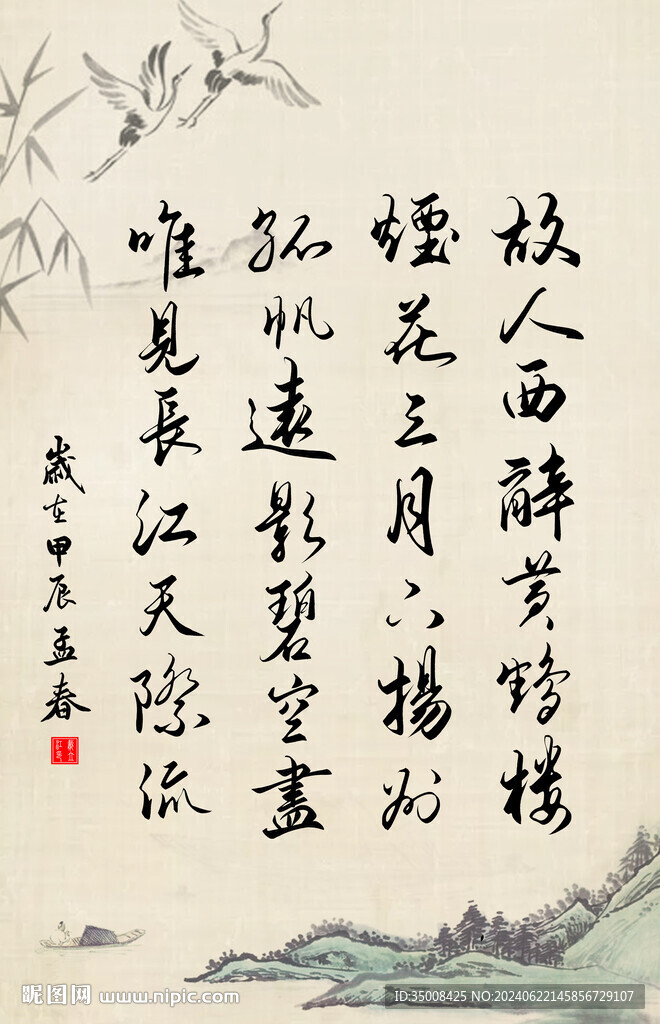 故人西辭黄鶴楼
煙花三月下揚州
孤帆遠影碧空盡
唯見長江天際流
歲在甲辰孟春
昵图网 www.nipic.com
ID:35008425 NO:20240622145856729107